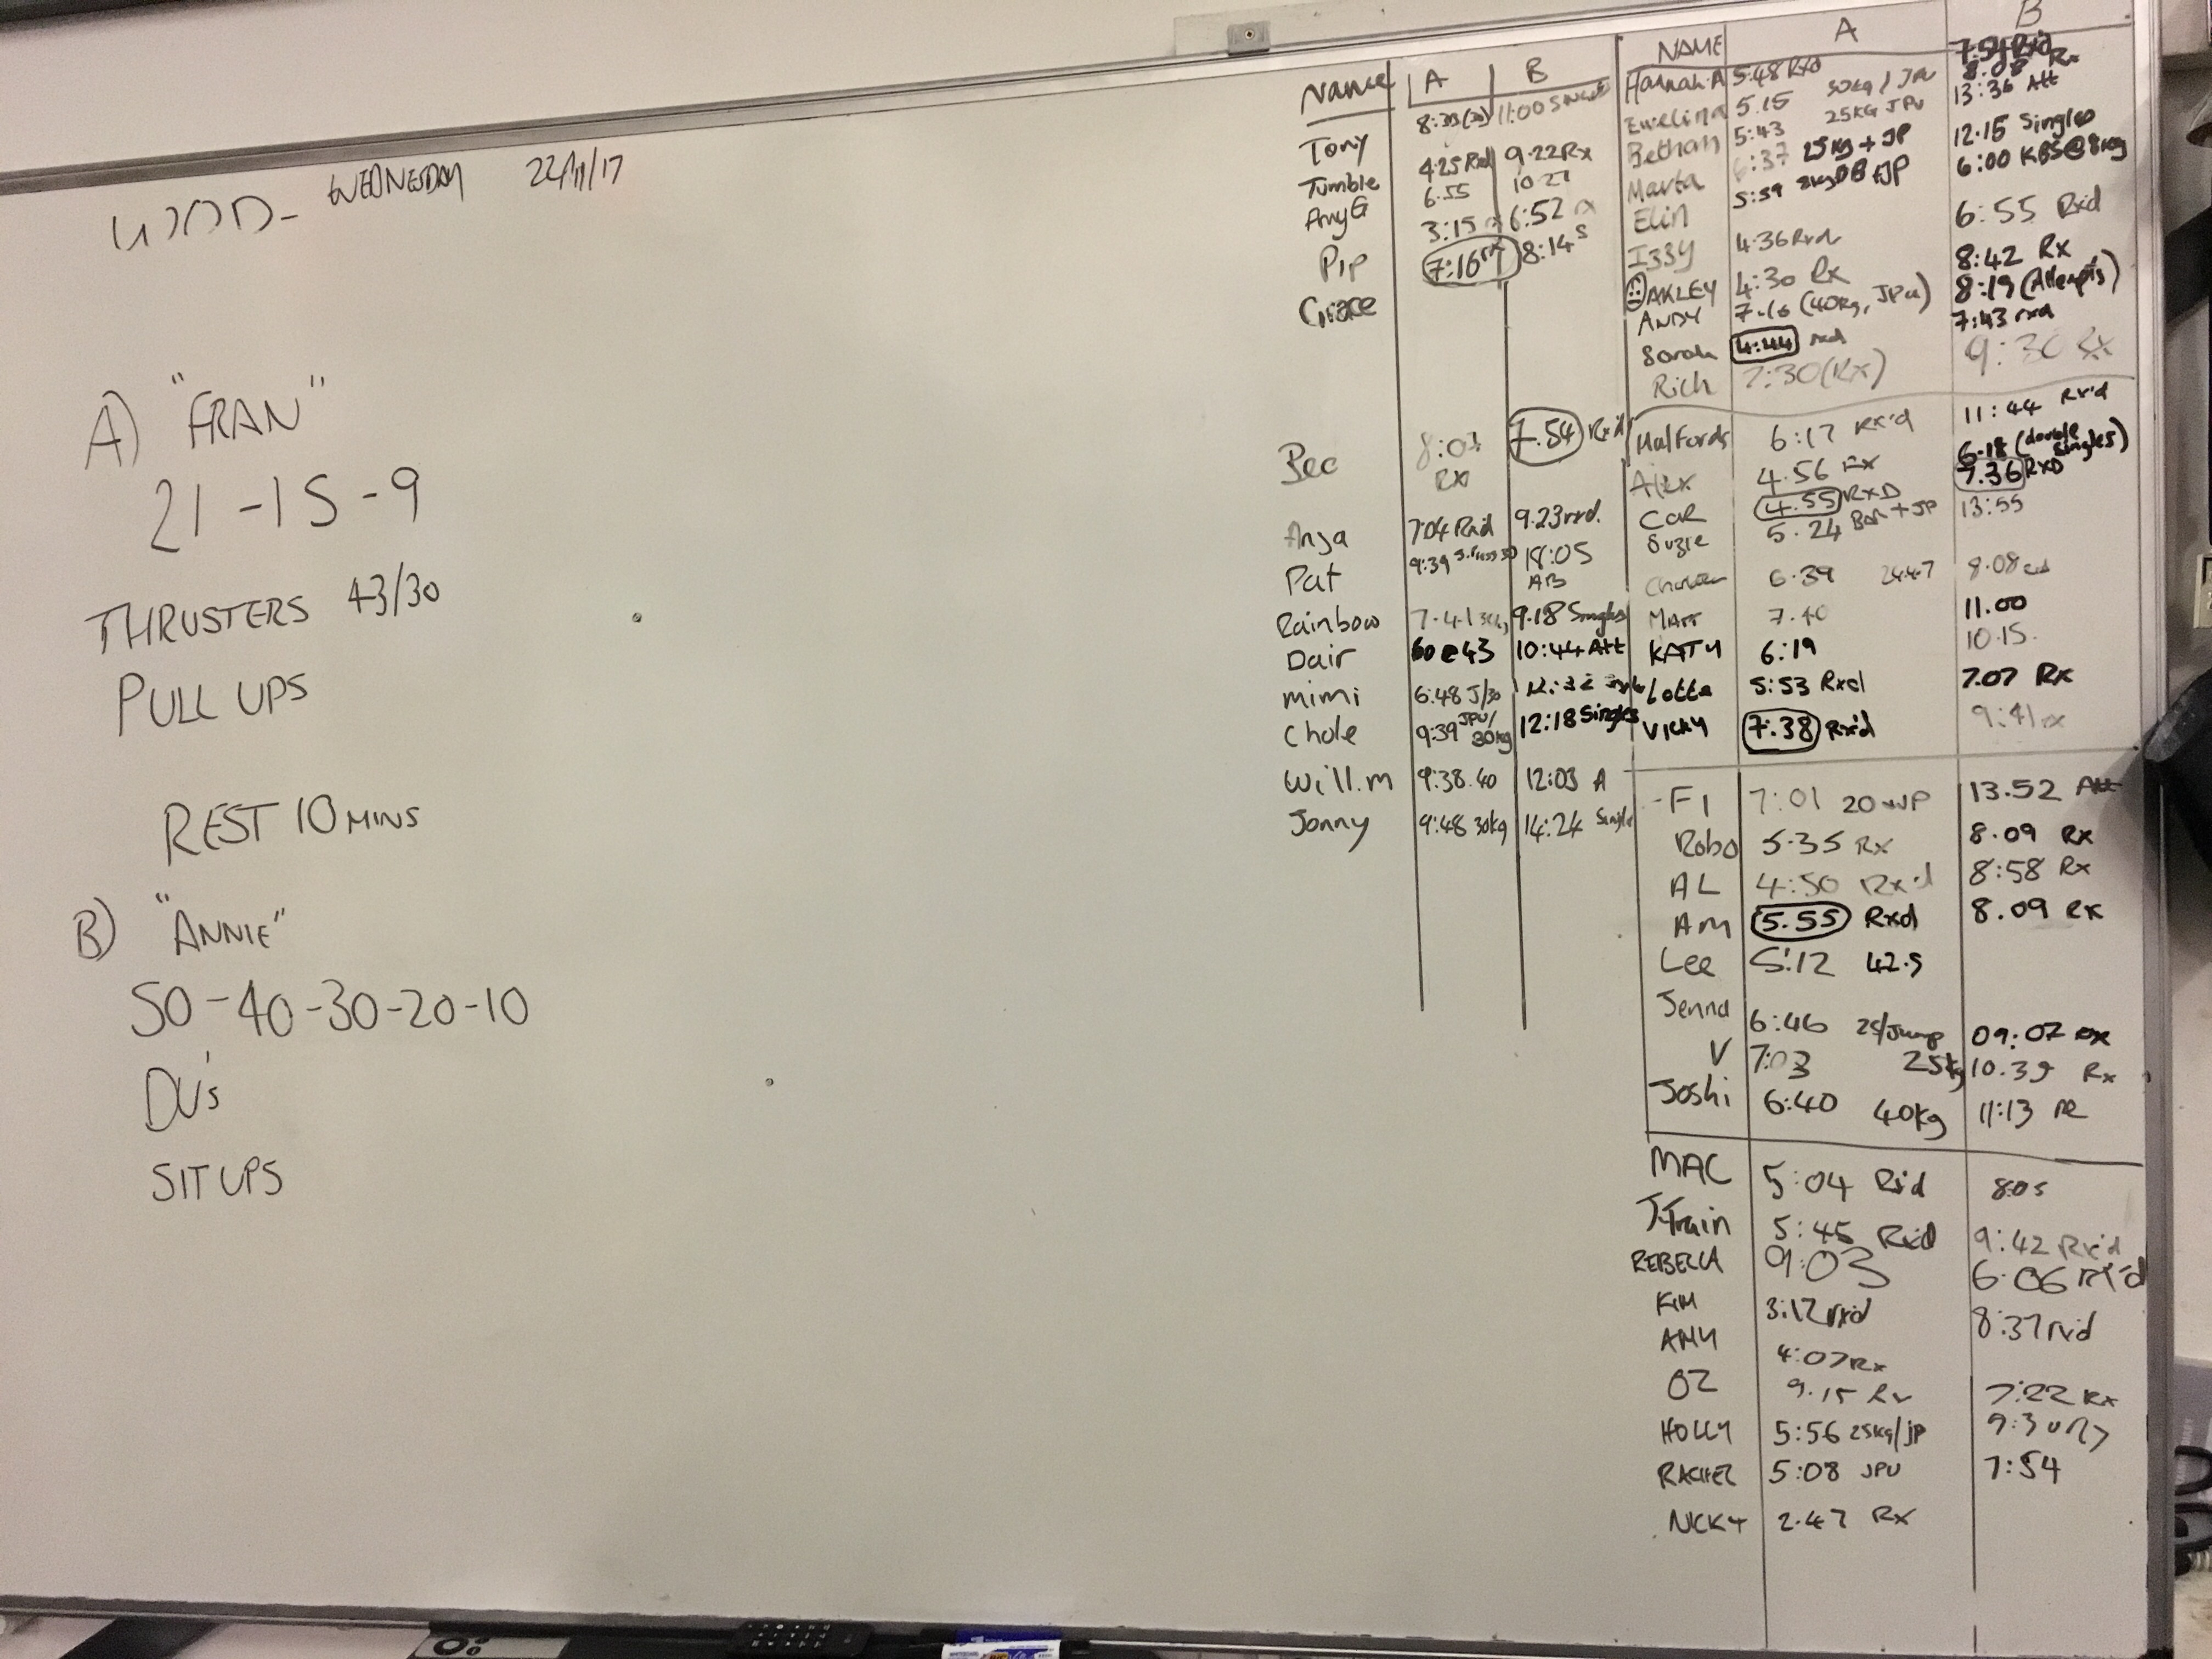 WOD - WEDNESDAY 22/11/17
A) "FRAN"
21 - 15 - 9
THRUSTERS 43/30
PULL UPS
REST 10 MINS
B) "ANNIE"
50 - 40 - 30 - 20 - 10
DU's
SIT UPS
Name A B
Tony 8:33(30) 11:00 Singles
Tumble 4:25 Rxd 9.22 Rx
Amy G 6.55 10.27
Pip 3:15 6:52
Grace 7:16 rx 8:14 S
Bec 8:07 RX 7.54 Rxd
Anja 7:04 Rxd 9.23 rxd.
Pat 9:39 18:05 AB
Rainbow 7.41 9.18 Singles
Dair 60 e 43 10:44 Att
mimi 6:48 J/30
Chole 9:39 JPU/30kg 12:18 Singles
Will.m 9:38.40 12:03 A
Jonny 9:48 30kg 14:24 Single
NAME A B
Hannah A 5:48 RXD 7:54 Rxd
Ewelina 5.15 30kg/JPU 8:08 Rx
Bethan 5:43 25KG JPU 13:36 Att
Marta 6:37 25kg + JP 12.15 Singles
Elin 5:59 8kg DB + JP 6:00 KBS@8kg
Izzy 4.36 Rxd 6:55 Rxd
OAKLEY 4:30 Rx 8:42 Rx
ANDY 7.16 (40kg, JPU) 8:19 (Attempts)
Sarah 4:44 rxd 7:43 rxd
Rich 7:30 (Rx) 9:30 Rx
Halfords 6:17 Rx'd 11:44 Rx'd
Alex 4.56 RX 6.18 (double singles)
CAR 4.55 RXD 7.36 RXD
Suzie 5.24 Ban + JP 13:55
6.39 8.08
MATT 7.40 11.00
KATY 6:19 10.15.
Lotta 5:53 Rxd 7.07 Rx
VICKY 7.38 Rx'd 9:41 rx
Fi 7:01 20 + JP 13.52 Att
Robo 5.35 Rx 8.09 Rx
AL 4:50 Rx'd 8:58 Rx
Am 5.55 Rxd 8.09 RX
Lee 5:12 42.5
Jenna 6:46 25/Jump 09:07 RX
V 7:03 25kg 10.39 Rx
Joshi 6:40 40kg 11:13
MAC 5:04 Rx'd 8:05
J-Train 5:45 Rxd 9:42 Rx'd
REBECCA 9:03 6:06 rx'd
KIM 3:12 rxd 8:37 rxd
AMY 4:07 Rx
OZ 9.15 Rx 7:22 Rx
HOLLY 5:56 25kg/JP
RACHEL 5:08 JPU 7:54
NICKY 2.47 Rx